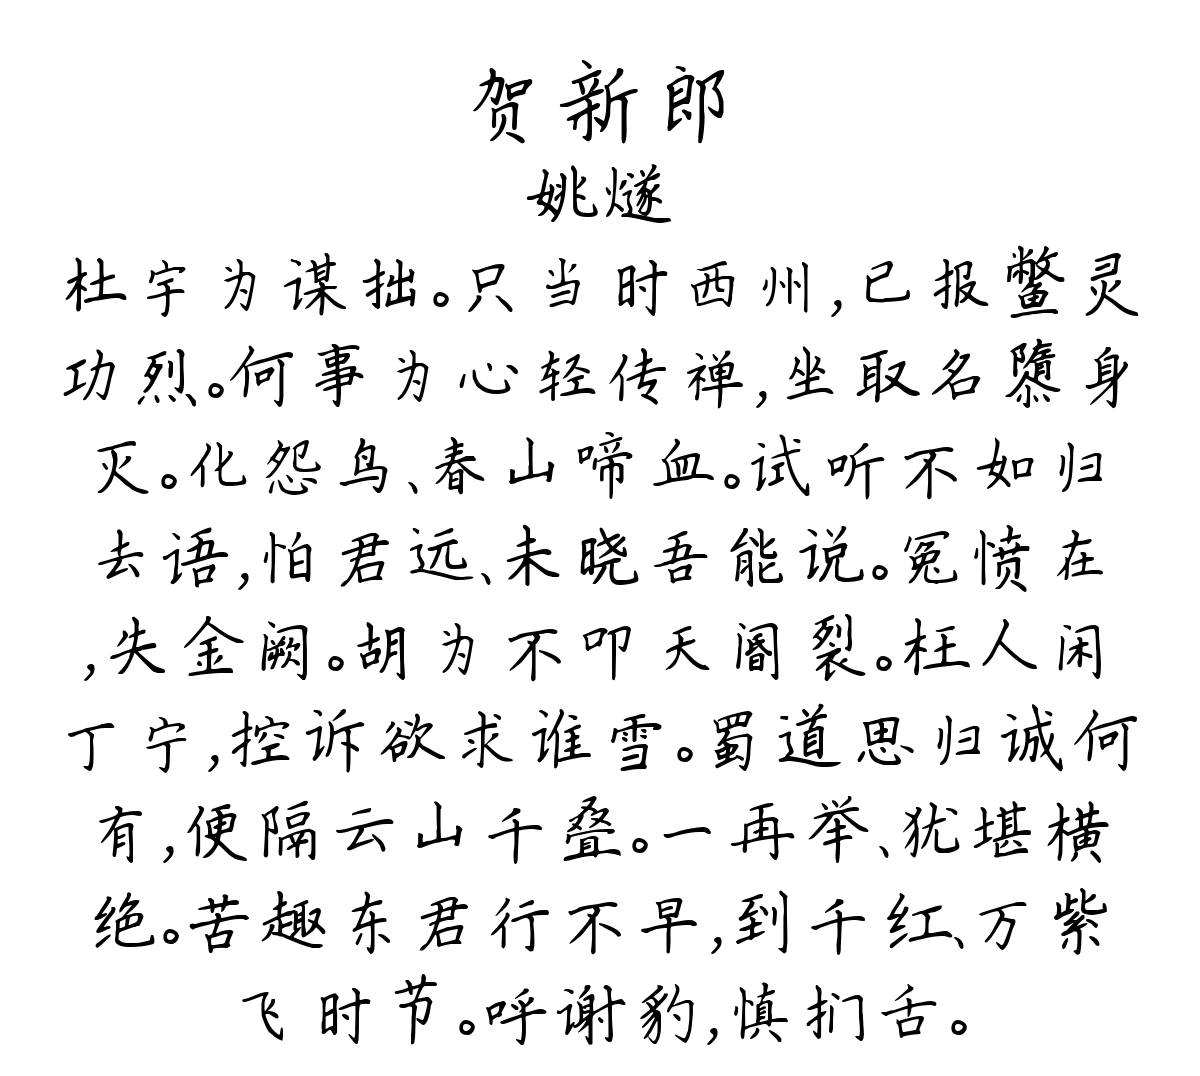 贺新郎
姚燧
杜宇为谋拙。只当时西州,已报鳖灵
功烈。何事为心轻传禅,坐取名隳身
灭。化怨鸟、春山啼血。试听不如归
去语,怕君远、未晓吾能说。冤愤在
,失金阙。胡为不叩天阍裂。枉人闲
丁宁,控诉欲求谁雪。蜀道思归诚何
有,便隔云山千叠。一再举、犹堪横
绝。苦趣东君行不早,到千红、万紫
飞时节。呼谢豹,慎扪舌。